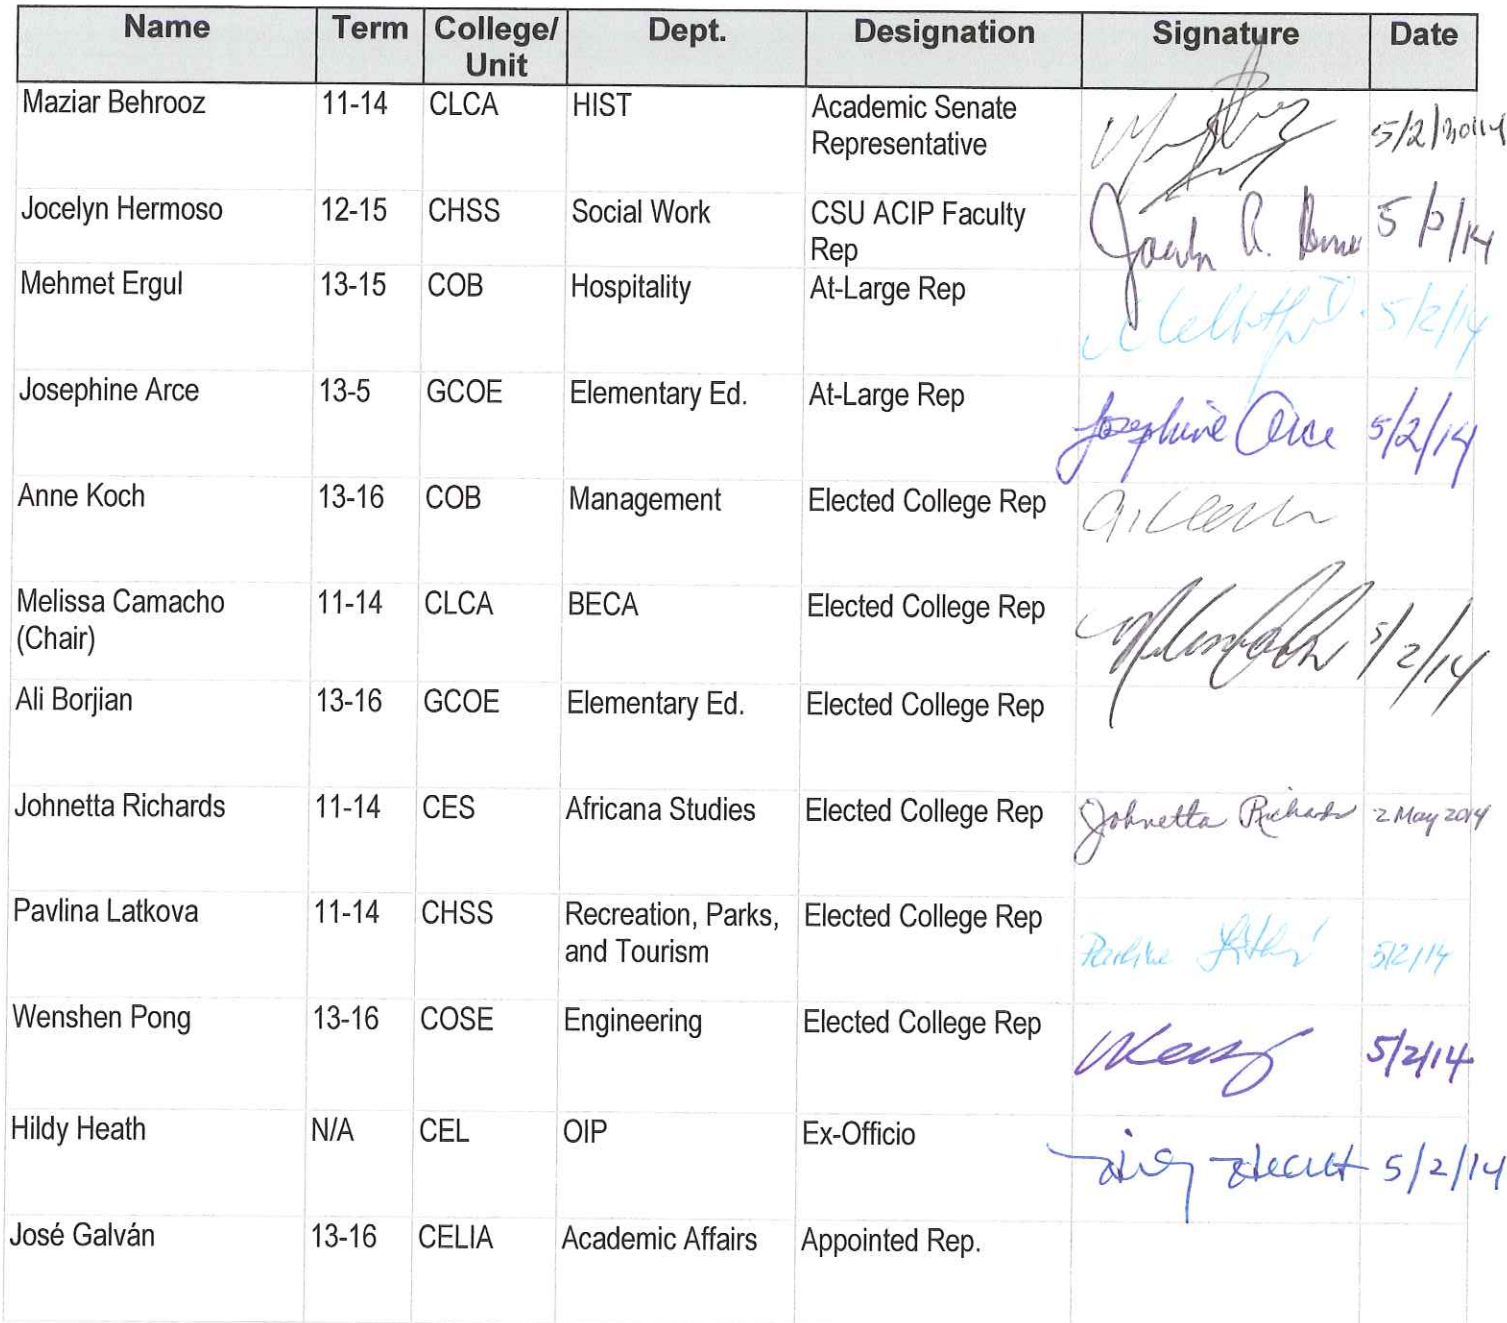 Name Term College/ Dept. Designation Signature Date
Unit
Maziar Behrooz 11-14 CLCA HIST Academic Senate 5/2/2014
Representative
Jocelyn Hermoso 12-15 CHSS Social Work CSU ACIP Faculty 5/2/14
Rep
Mehmet Ergul 13-15 COB Hospitality At-Large Rep 5/2/14
Josephine Arce 13-5 GCOE Elementary Ed. At-Large Rep Josephine Arce 5/2/14
Anne Koch 13-16 COB Management Elected College Rep
Melissa Camacho 11-14 CLCA BECA Elected College Rep 5/2/14
(Chair)
Ali Borjian 13-16 GCOE Elementary Ed. Elected College Rep
Johnetta Richards 11-14 CES Africana Studies Elected College Rep Johnetta Richards 2 May 2014
Pavlina Latkova 11-14 CHSS Recreation, Parks, Elected College Rep 5/2/14
and Tourism
Wenshen Pong 13-16 COSE Engineering Elected College Rep 5/2/14
Hildy Heath N/A CEL OIP Ex-Officio Hildy Heath 5/2/14
José Galván 13-16 CELIA Academic Affairs Appointed Rep.